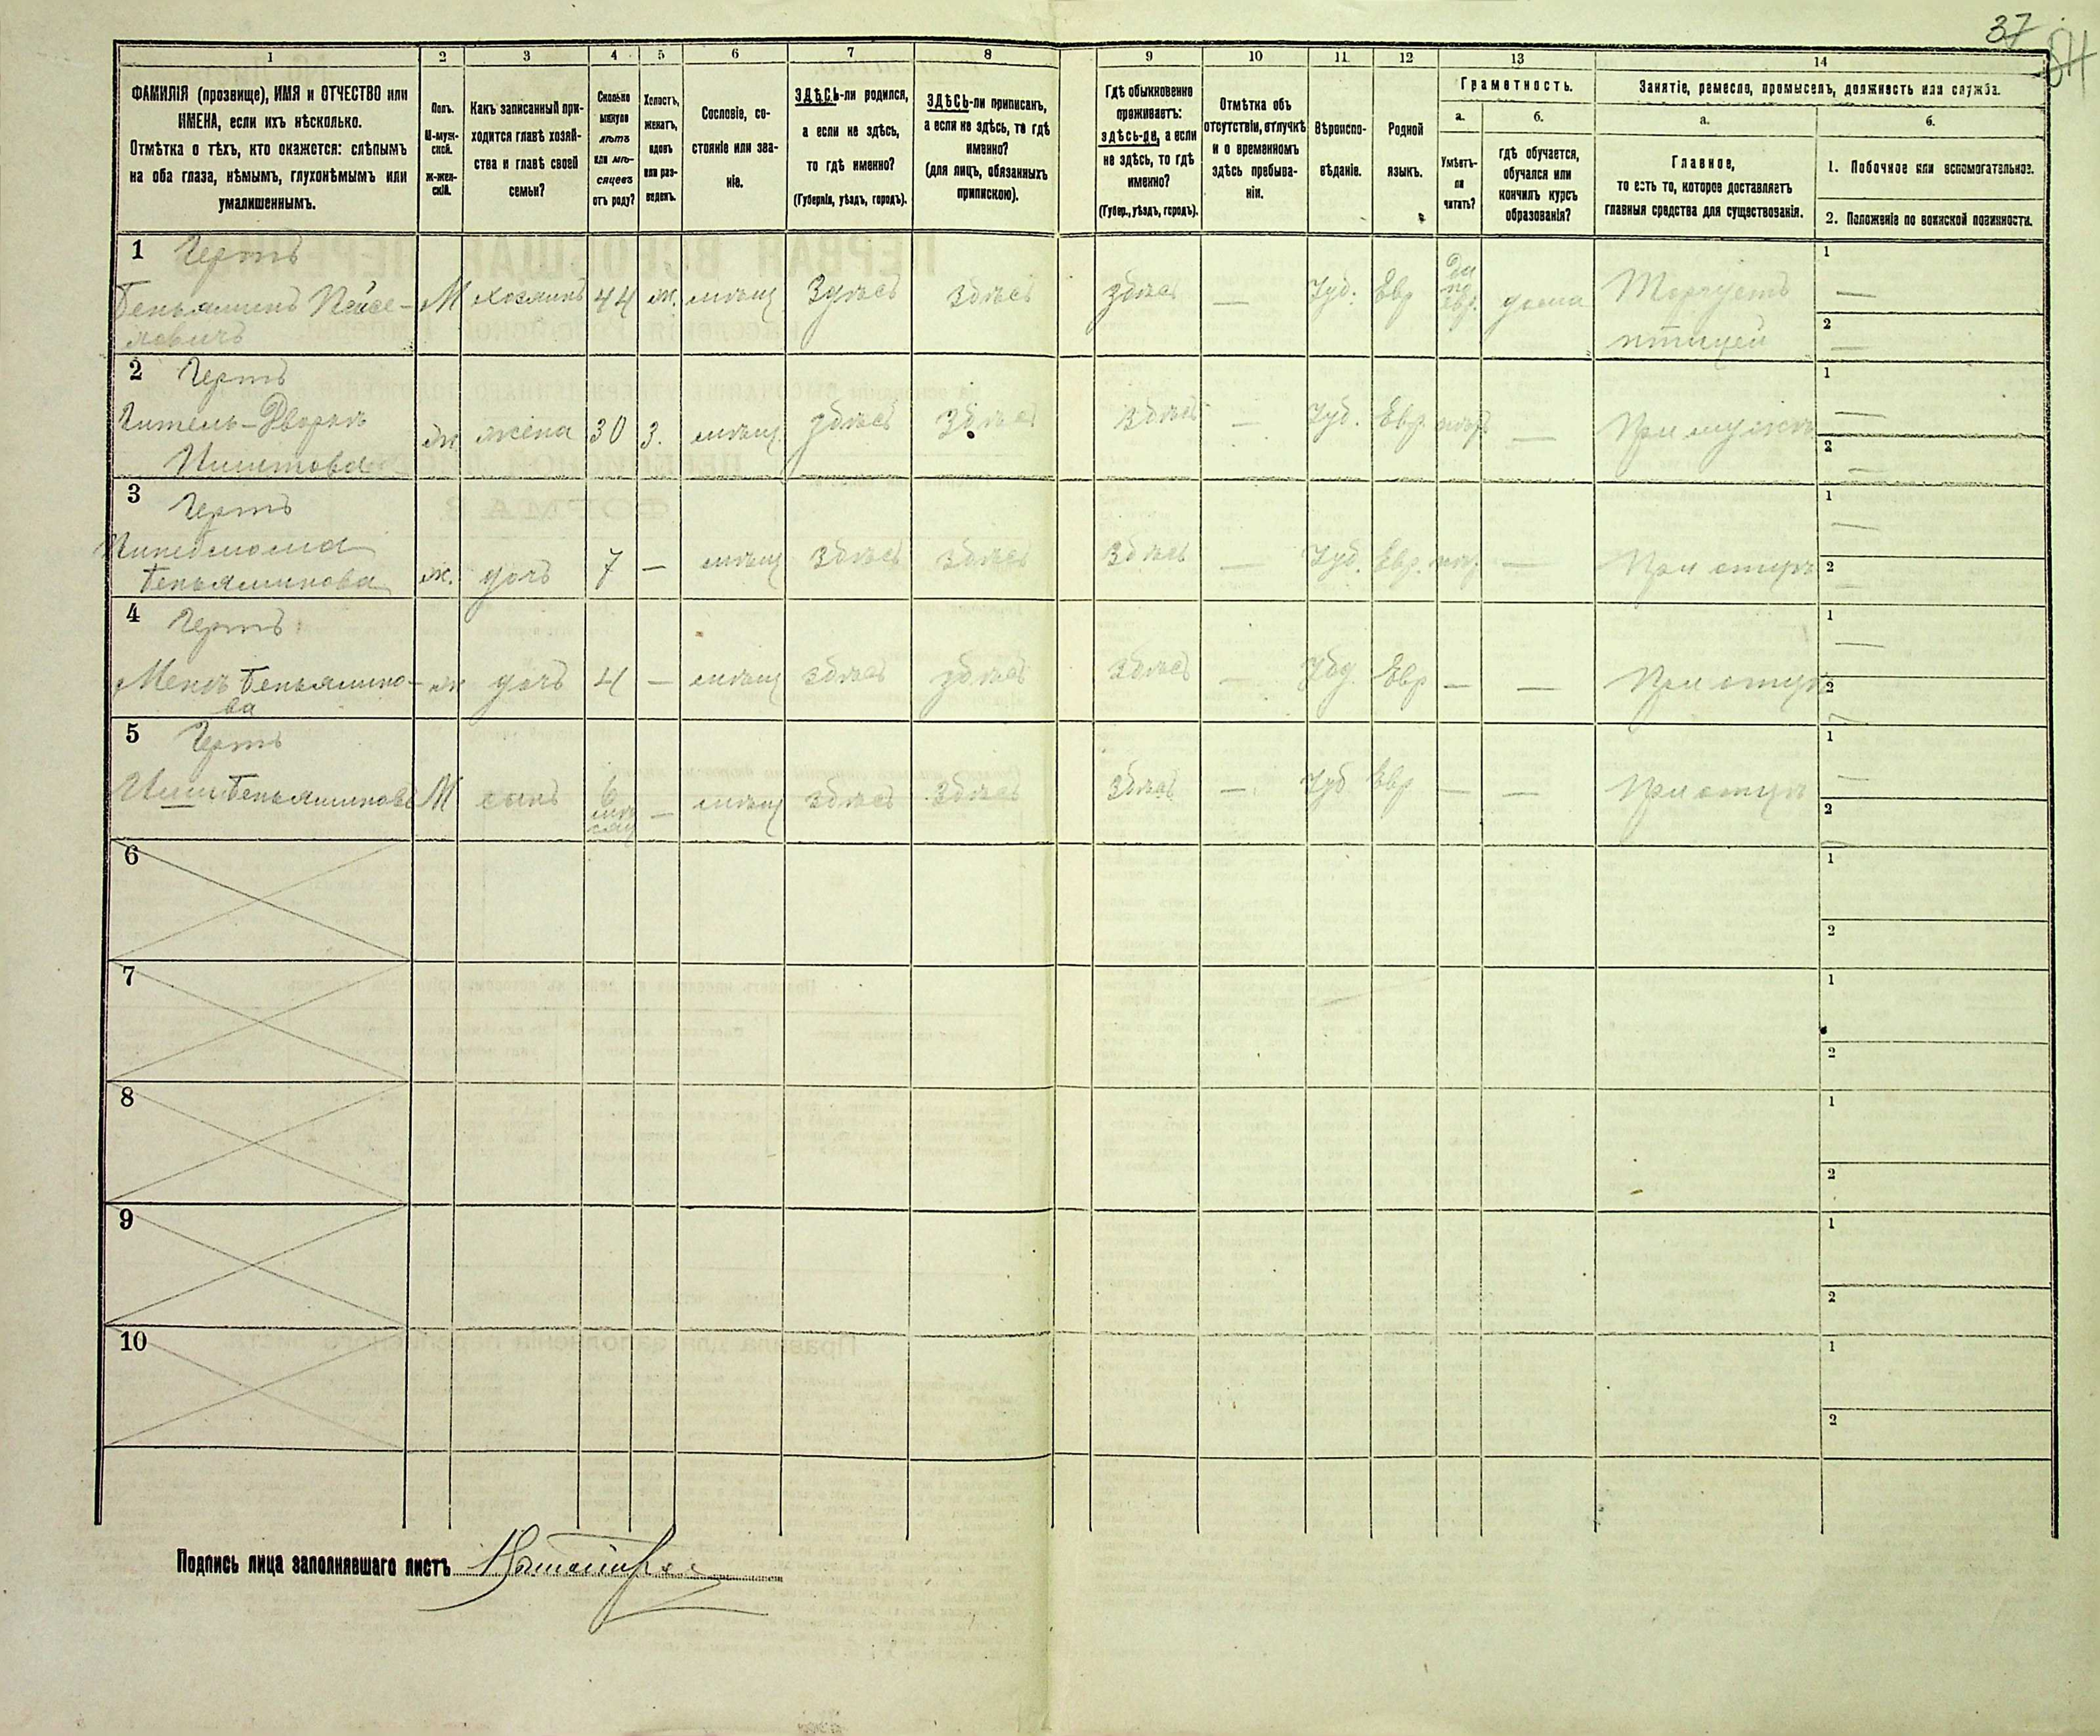 37
1 2 3 4 5 6 7 8 9 10 11 12 13 14
ФАМИЛІЯ (прозвище), ИМЯ и ОТЧЕСТВО или
ИМЕНА, если ихъ нѣсколько.
Отмѣтка о тѣхъ, кто окажется: слѣпымъ
на оба глаза, нѣмымъ, глухонѣмымъ или
умалишеннымъ.
Полъ.
М-муж-
ской.
Ж-жен-
скій.
Какъ записанный при-
ходится главѣ хозяй-
ства и главѣ своей
семьи?
Сколько
минуло
лѣтъ
или мѣ-
сяцевъ
отъ роду?
Холостъ,
женатъ,
вдовъ
или раз-
веденъ.
Сословіе, со-
стояніе или зва-
ніе.
ЗДѢСЬ-ли родился,
а если не здѣсь,
то гдѣ именно?
(Губернія, уѣздъ, городъ).
ЗДѢСЬ-ли приписанъ,
а если не здѣсь, то гдѣ
именно?
(для лицъ, обязанныхъ
припискою).
Гдѣ обыкновенно
проживаетъ:
здѣсь-ли, а если
не здѣсь, то гдѣ
именно?
(Губер., уѣздъ, городъ).
Отмѣтка объ
отсутствіи, отлучкѣ
и о временномъ
здѣсь пребыва-
ніи.
Вѣроиспо-
вѣданіе.
Родной
языкъ.
Грамотность.
а.
Умѣетъ-
ли
читать?
б.
гдѣ обучается,
обучался или
кончилъ курсъ
образованія?
Занятіе, ремесло, промыселъ, должность или служба.
а.
Главное,
то есть то, которое доставляетъ
главныя средства для существованія.
б.
1. Побочное или вспомогательное.
2. Положеніе по воинской повинности.
1 Гертъ
Беньяминъ Пейсе- М хозяинъ 44 ж. мѣщ здѣсь здѣсь здѣсь — Іуд. Евр да по евр. дома Торгуетъ 1 —
ловичъ птицей 2 —
2 Гертъ 1 —
Гитель-Двойра ж жена 30 з. мѣщ. здѣсь здѣсь здѣсь — Іуд. Евр. — При мужѣ 2 —
3 Гертъ 1 —
Беньяминова ж. дочь 7 — мѣщ здѣсь здѣсь здѣсь — Іуд. Евр. — При отцѣ 2 —
4 Гертъ 1 —
Беньямино- ж дочь 4 — мѣщ здѣсь здѣсь здѣсь — Іуд. Евр — — При отцѣ 2
ва
5 Гертъ 1 —
М сынъ 6 мѣсяц — мѣщ здѣсь здѣсь здѣсь — Іуд Евр — — При отцѣ 2
6 1 2
7 1 2
8 1 2
9 1 2
10 1 2
Подпись лица заполнявшаго листъ